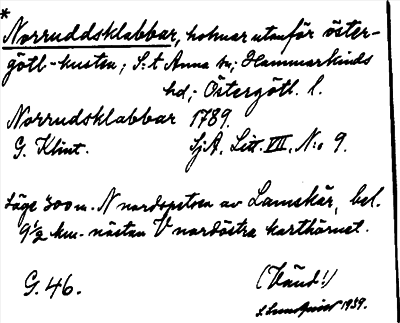 *
Norruddsklabbar, holmar utanför öster-
götl-kusten; S:t Anna sn; Hammarkinds
hd; Östergötl. l.
Norrudsklabbar 1789.
G. Klint. Sj.A. Litt. VII. N:o 9.
Läge 300 m. N nordspetsen av Lamskär, bel.
9½ km. nästan V nordöstra karthörnet.
G. 46. (Vänd!)
S Lundqvist 1939.